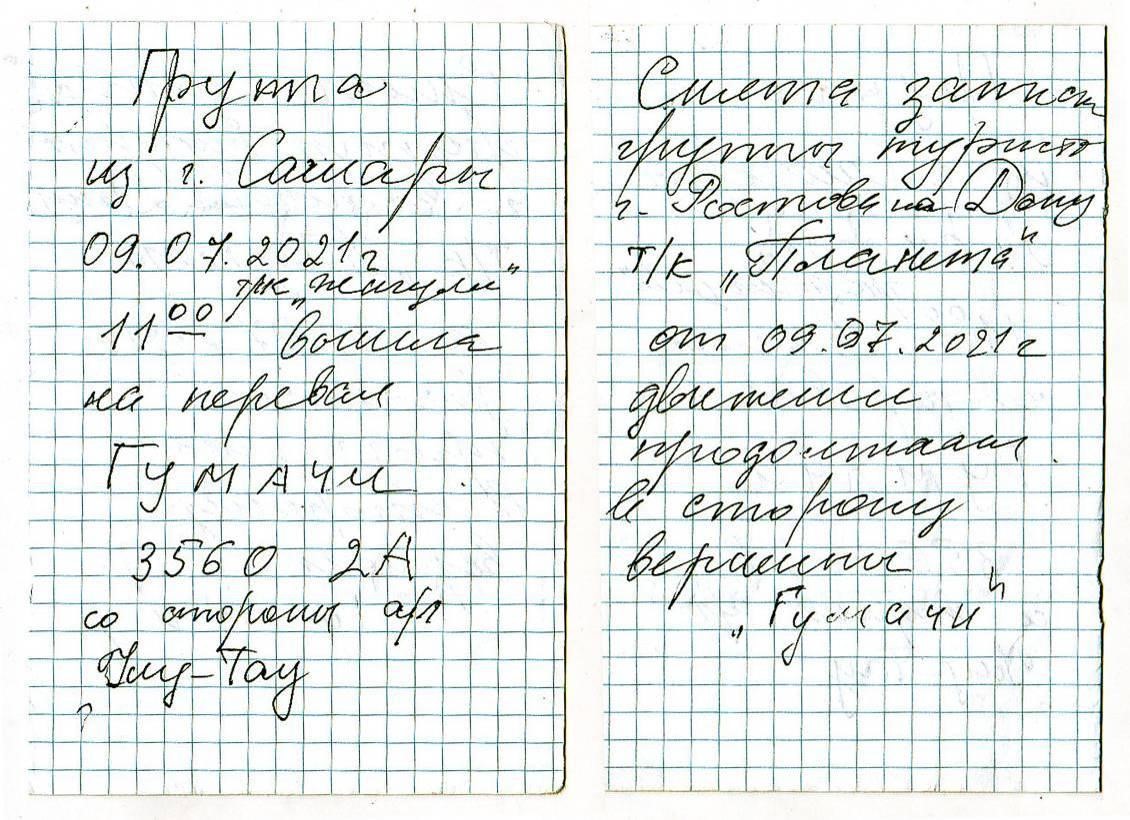 Группа
из г. Самары
09.07.2021г
т/к „Жигули"
11⁰⁰ вошла
на перевал
ГУМАЧИ
3560 2А
со стороны а/л
Улу-Тау
Снята записк
группы турист
г. Ростова на Дону
т/к „Планета"
от 09.07.2021г
движении
продолжаем
в сторону
вершины
„Гумачи"